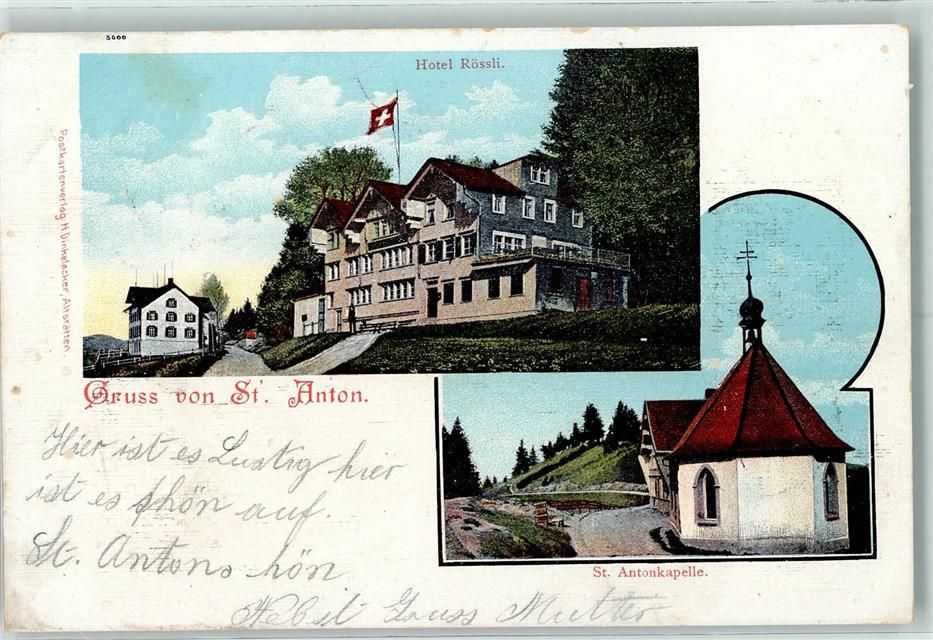 5600
Hotel Rössli.
Postkartenverlag H. Dinkelacker, Altstätten.
Gruss von St. Anton.
St. Antonkapelle.
Hier ist es Lustig hier
ist es schön auf.
St. Anton. hön
Nebst Gruss Mutter